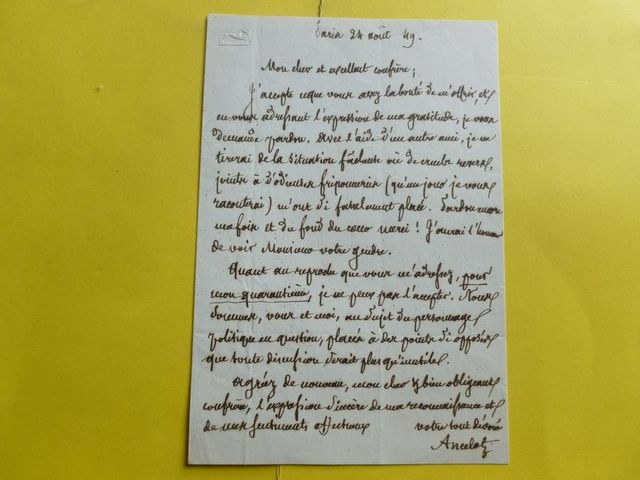 Paris 24 août 49.
Mon cher et excellent confrère;
J'accepte ce que vous avez la bonté de m'offrir, et
en vous adressant l'expression de ma gratitude, je vous
demande pardon. Avec l'aide d'un autre ami, je me
tirerai de la situation fâcheuse où de cruels revers,
joints à d'odieuses friponneries (qu'un jour je vous
raconterai) m'ont si fatalement placé. Pardon encore
ma fois et du fond du cœur merci! J'aurai l'honneur
de voir Monsieur votre gendre.
Quant au reproche que vous m'adressez, pour
mon quarantième, je ne peux pas l'accepter. Nous
sommes, vous et moi, au sujet du personnage
politique en question, placés à des points si opposés
que toute discussion serait plus qu'inutile.
Agréez de nouveau, mon cher & bien obligeant
confrère, l'expression sincère de ma reconnaissance et
de mes sentiments affectueux votre tout dévoué
Ancelot